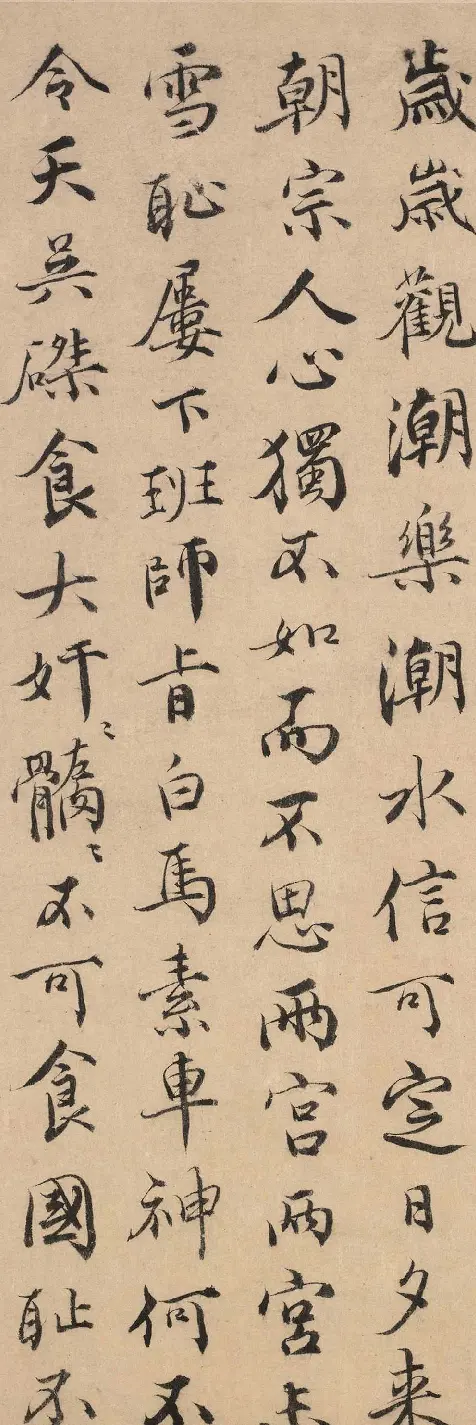 歲歲觀潮樂潮水信可定日夕来
朝宗人心獨不如而不思兩宮兩宮未
雪恥屢下班師旨白馬素車神何不
令天吳磔食大奸〻髑〻不可食國耻不